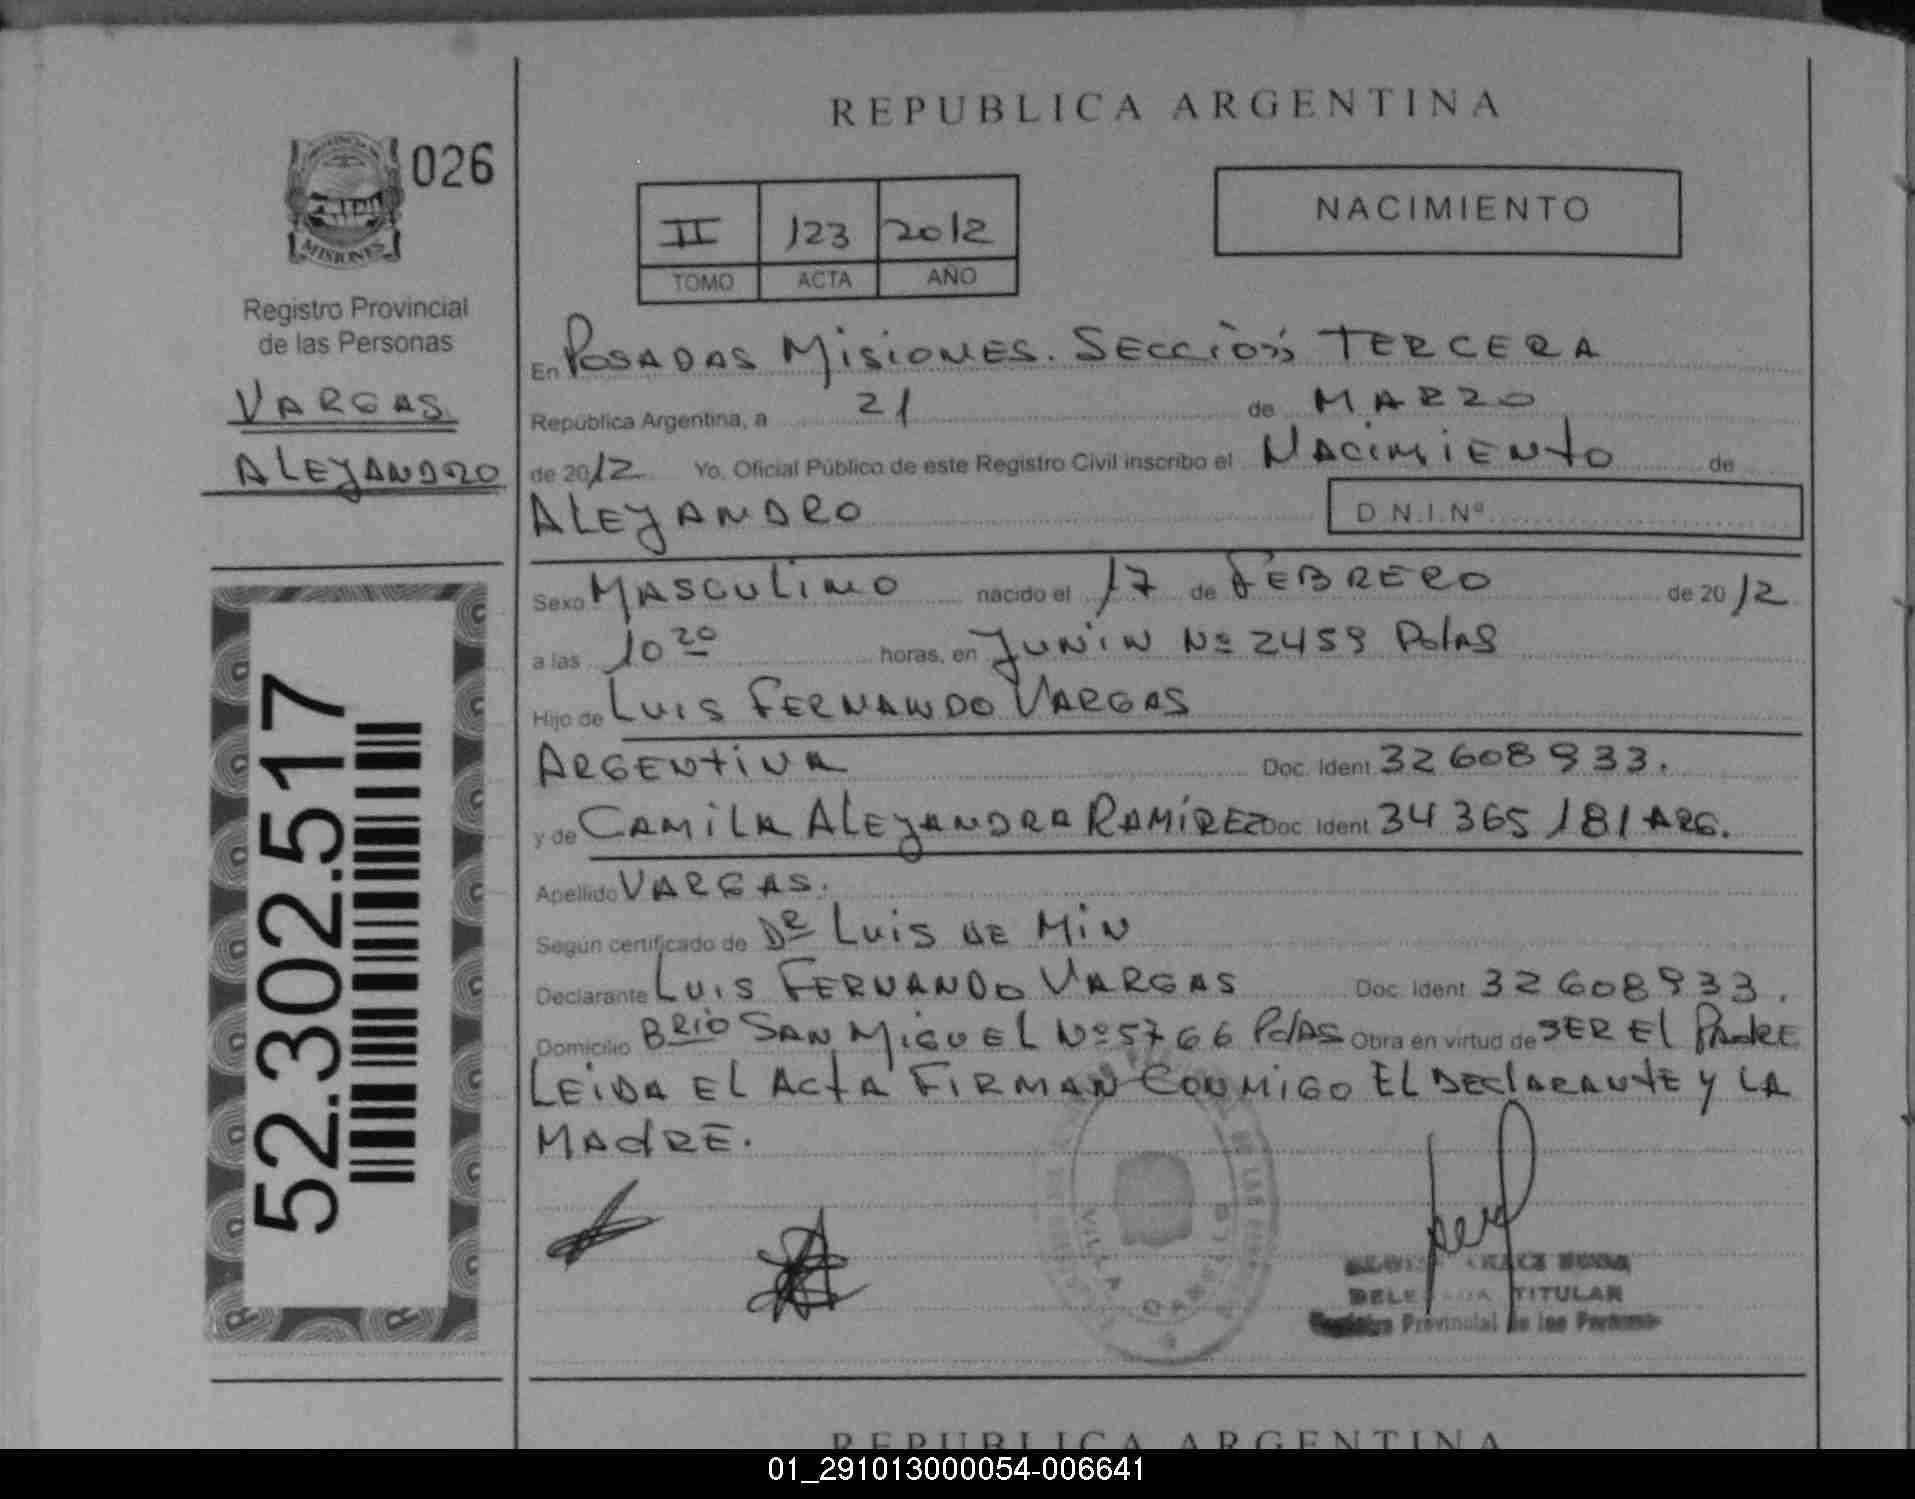 REPUBLICA ARGENTINA
026
MISIONES
Registro Provincial
de las Personas
VARGAS
ALEJANDRO
52.302.517
II 123 2012
TOMO ACTA AÑO
NACIMIENTO
En POSADAS MISIONES. SECCIÒN TERCERA
República Argentina, a 21 de MARZO
de 2012 Yo, Oficial Público de este Registro Civil inscribo el NACIMIENTO de
ALEJANDRO D.N.I.Nº
Sexo MASCULINO nacido el 17 de FEBRERO de 2012
a las 10 20 horas, en JUNIN Nº 2459 PdAS
Hijo de LUIS FERNANDO VARGAS
ARGENTINA Doc. Ident 32608933.
y de CAMILA ALEJANDRA RAMÍREZ Doc. Ident 34365181 ARG.
Apellido VARGAS.
Según certificado de DR LUIS DE MIN
Declarante LUIS FERNANDO VARGAS Doc. Ident 32608933.
Domicilio BRIO SAN MIGUEL Nº 5766 PdAS Obra en virtud de SER El PAdRE
LEIDA EL ACTA FIRMAN CONMIGO EL DEClARANTE Y LA
MAdRE.
VILLA
TITULAR
Registro Provincial de las Personas
REPUBLICA ARGENTINA
01_291013000054-006641